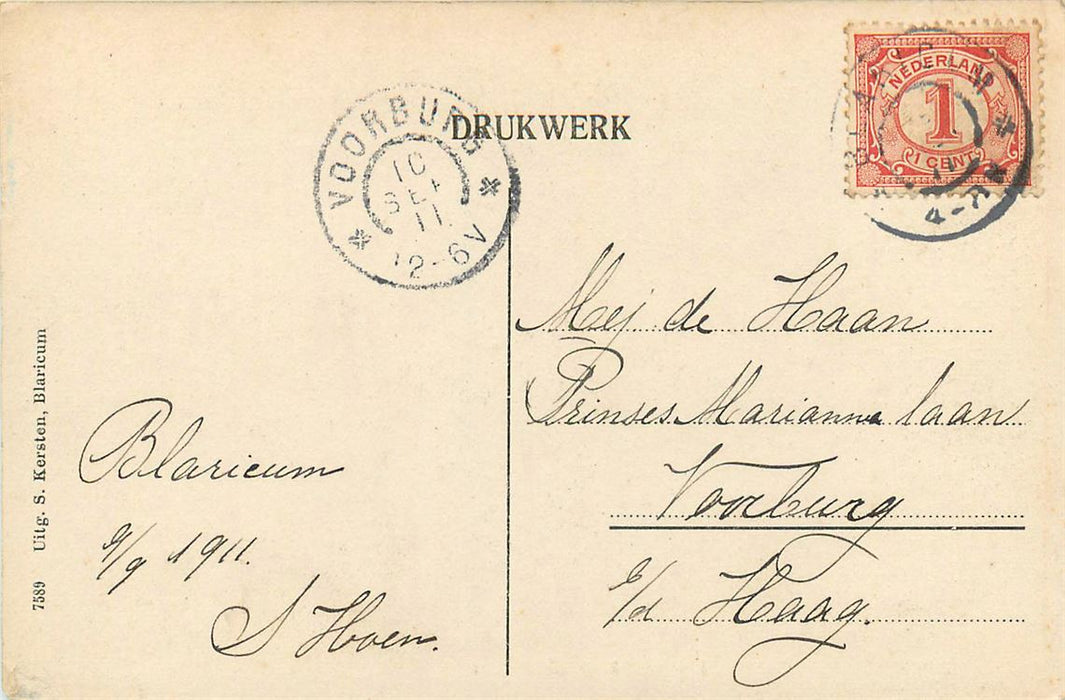 DRUKWERK
VOORBURG
10
SEP
11
12-6V
NEDERLAND
1
1 CENT
BLARICUM
Mej de Haan
Prinses Marianne laan
Voorburg
b/d Haag.
Blaricum
9/9 1911.
S Hoen.
7589 Uitg. S. Kersten, Blaricum